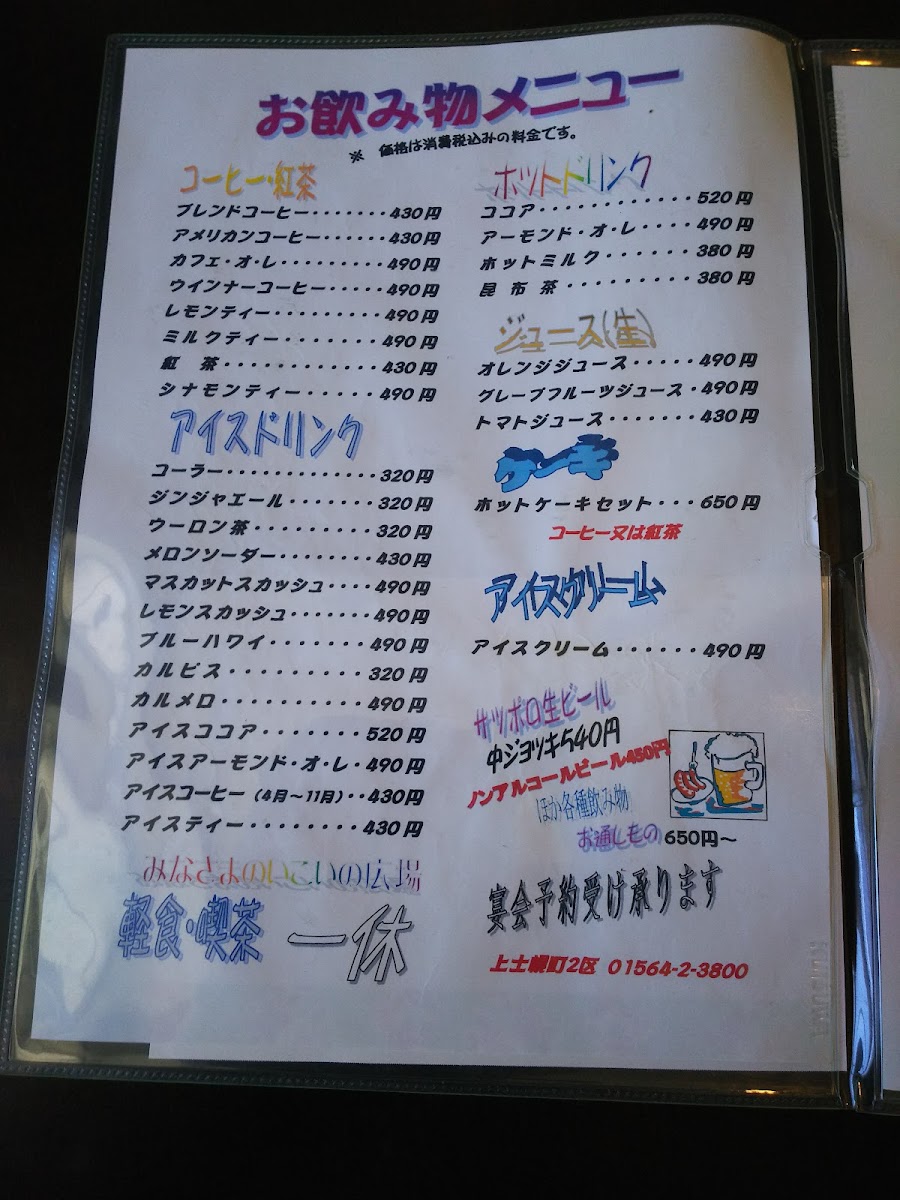 お飲み物メニュー
※ 価格は消費税込みの料金です。
コーヒー・紅茶
ブレンドコーヒー・・・・・・・430円
アメリカンコーヒー・・・・・・430円
カフェ・オ・レ・・・・・・・・・490円
ウインナーコーヒー・・・・・490円
レモンティー・・・・・・・・・490円
ミルクティー・・・・・・・・490円
紅　茶・・・・・・・・・・・・430円
シナモンティー・・・・・・490円
アイスドリンク
コーラー・・・・・・・・・・・・320円
ジンジャエール・・・・・・・320円
ウーロン茶・・・・・・・・・・320円
メロンソーダー・・・・・・・・430円
マスカットスカッシュ・・・・490円
レモンスカッシュ・・・・・・・490円
ブルーハワイ・・・・・・・・490円
カルピス・・・・・・・・・・・320円
カルメロ・・・・・・・・・・・490円
アイスココア・・・・・・・・520円
アイスアーモンド・オ・レ・490円
アイスコーヒー（4月～11月）・・430円
アイスティー・・・・・・・・・430円
みなさまのいこいの広場
軽食・喫茶 一休
ホットドリンク
ココア・・・・・・・・・・・・520円
アーモンド・オ・レ・・・・490円
ホットミルク・・・・・・380円
昆 布 茶・・・・・・・・・380円
ジュース(生)
オレンジジュース・・・・・490円
グレープフルーツジュース・490円
トマトジュース・・・・・・・430円
ケーキ
ホットケーキセット・・・650円
コーヒー又は紅茶
アイスクリーム
アイスクリーム・・・・・・490円
サッポロ生ビール
中ジョッキ540円
ノンアルコールビール450円
ほか各種飲み物
お通しもの 650円～
宴会予約受け承ります
上士幌町2区 01564-2-3800